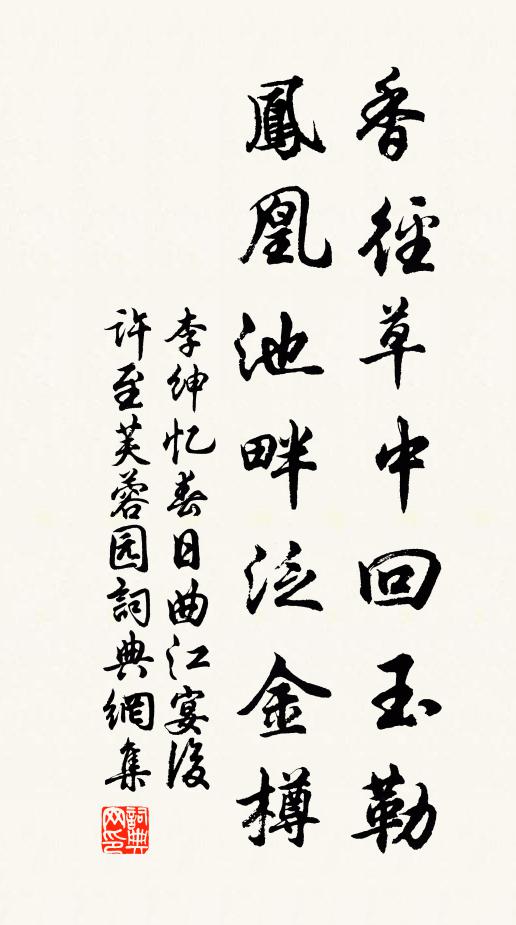 香徑草中回玉勒
鳳凰池畔泛金樽
李紳忆春日曲江宴後
许至芙蓉园詞典網集
詞典
网印